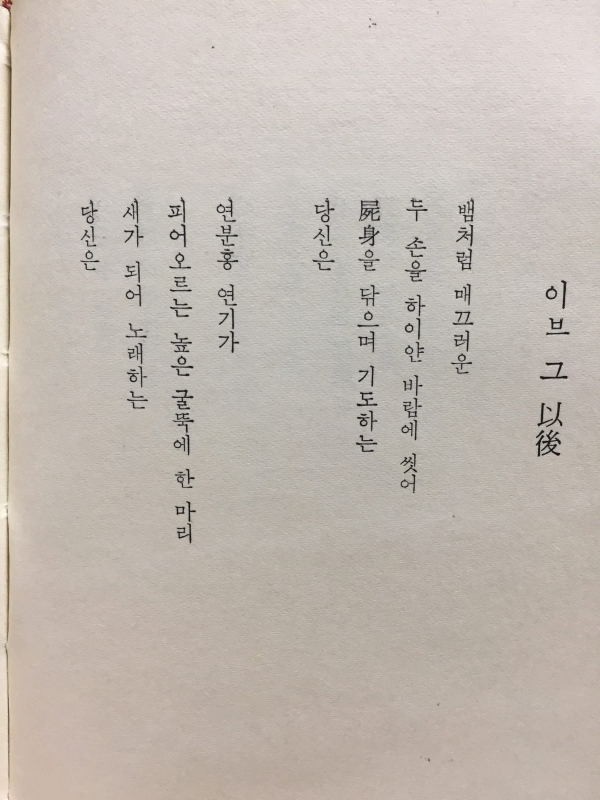 이브 그 以後
뱀처럼 매끄러운
두 손을 하이얀 바람에 씻어
屍身을 닦으며 기도하는
당신은
연분홍 연기가
피어오르는 높은 굴뚝에 한 마리
새가 되어 노래하는
당신은